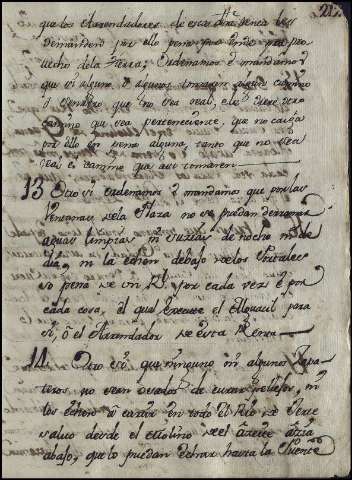 212
que los Arrendadores de esta dha renta les
demanden por ello pena pues donde por pro
uecho dela tierra; Ordenamos é mandamos
que si alguno ó algunos tomaren algun camino
ó sendero que no sea real, e los diere otro
camino que sea perteneciente, que no caiga
por ello en pena alguna, tanto que no sea
Real el camino que assi tomaren
13 Otro si ordenamos é mandamos que por las
Ventanas de la Plaza no se puedan derramar
aguas limpias ni suzias de noche ni de
dia, ni la echen debajo de los Portales
so pena de un Rl. por cada vez é por
cada cosa, el qual execute el Alguacil para
si, ó el Arrendador de esta Renta
14 Otro si, que ninguno ni algunos Zapa
teros, no sean osados de curar pellejos, ni
los echen á curar en todo el Rio de
salvo desde el Molino del azeite
abajo, que lo puedan echar hasta la Puente